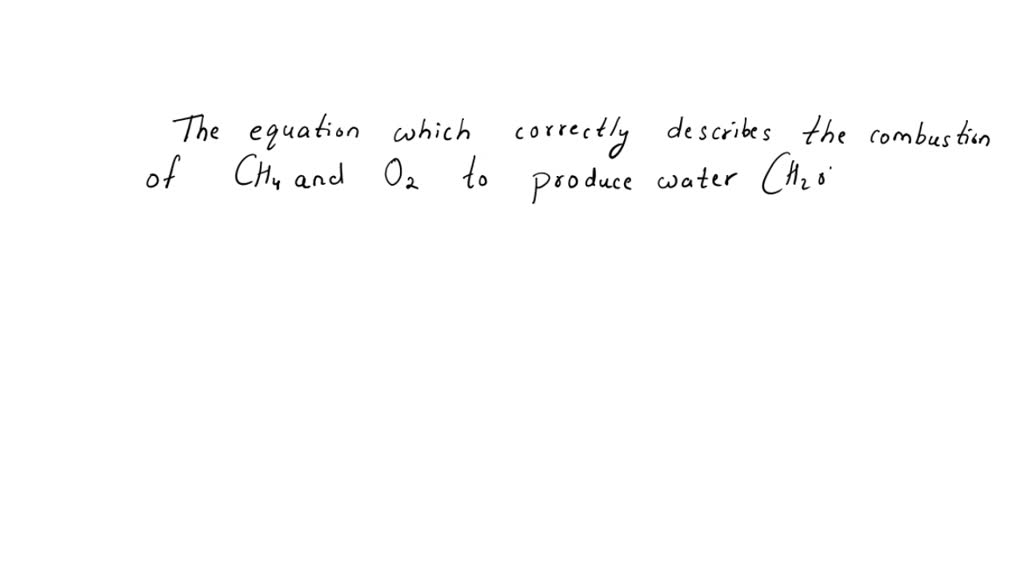 The equation which correctly describes the combustion
of CH₄ and O₂ to produce water (H₂O